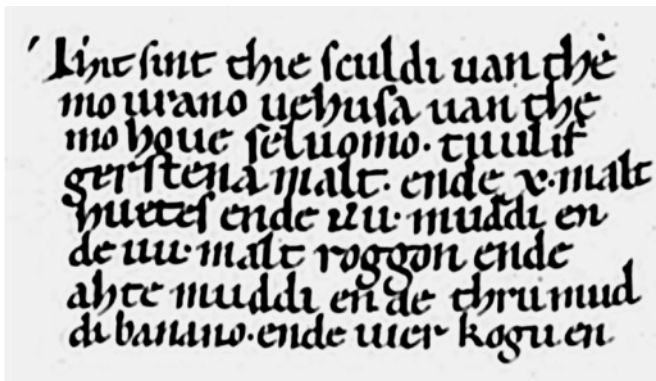 Thit sint thie sculdi uan the
mo urano uehusa uan the
mo houe seluomo· tuulif
gerstena malt· ende x·malt
huetes ende iiii·muddi en
de iiii·malt roggon ende
ahte muddi ende thru mud
di banano·ende uier kogii en